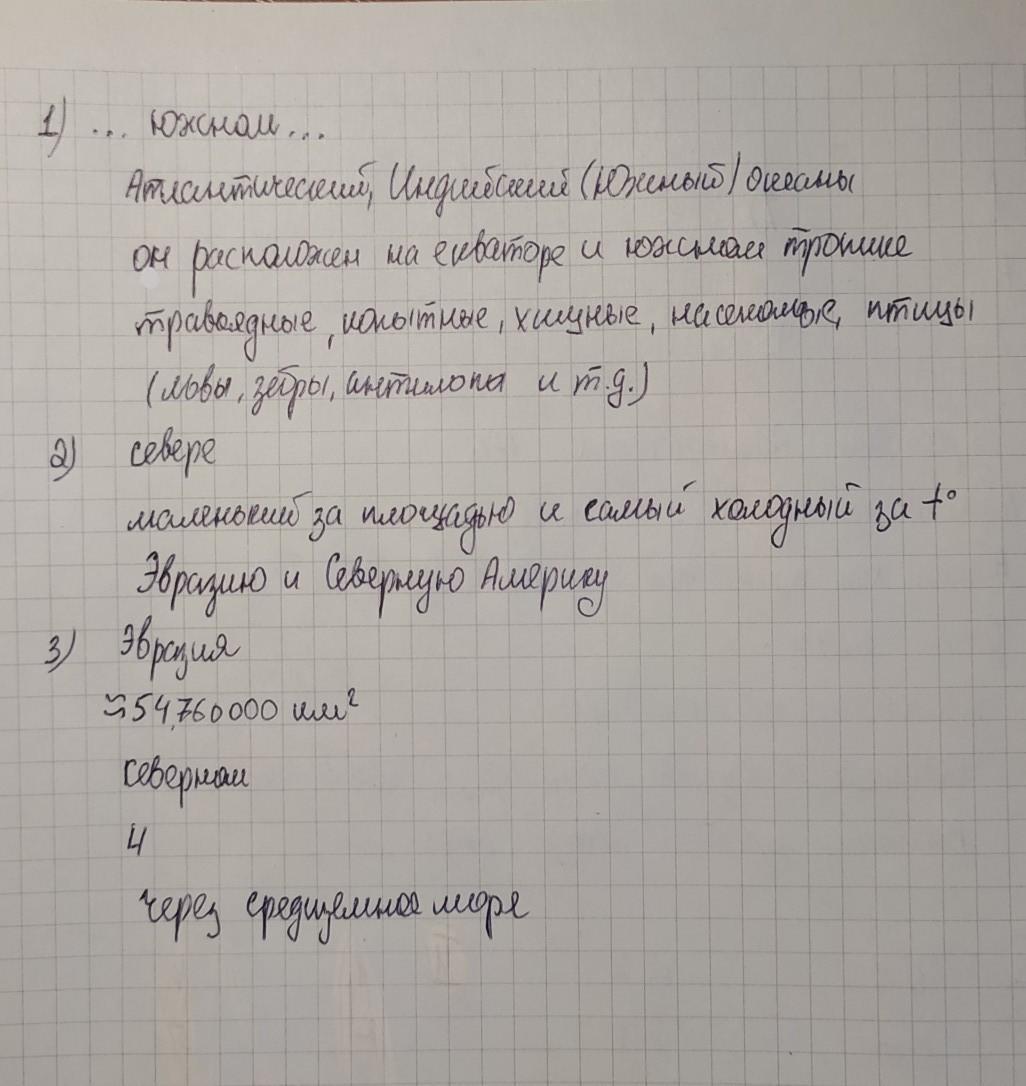 1) ... южном...
Атлантический, Индийский (Южный) океаны
он расположен на екваторе и южном тропике
травоядные, копытные, хищные, насекомые, птицы
(львы, зебры, антилопы и т.д.)
2) севере
маленький за площадью и самый холодный за t°
Эвразию и Северную Америку
3) Эвразия
≈54,760000 км²
северном
4
через средиземное море